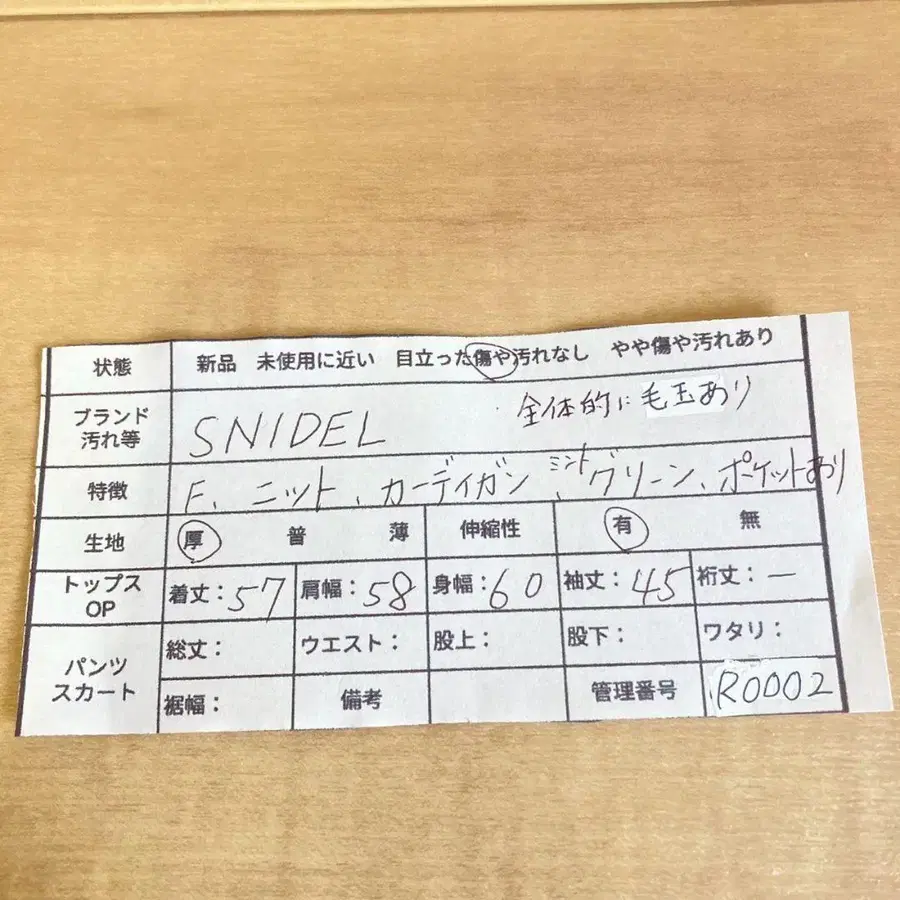 状態 新品 未使用に近い 目立った傷や汚れなし やや傷や汚れあり
ブランド 汚れ等 SNIDEL 全体的に毛玉あり
特徴 F、ニット、カーディガン、ミントグリーン、ポケットあり
生地 厚 普 薄 伸縮性 有 無
トップス OP 着丈：57 肩幅：58 身幅：60 袖丈：45 裄丈：—
パンツ スカート 総丈： ウエスト： 股上： 股下： ワタリ：
裾幅： 備考 管理番号 R0002